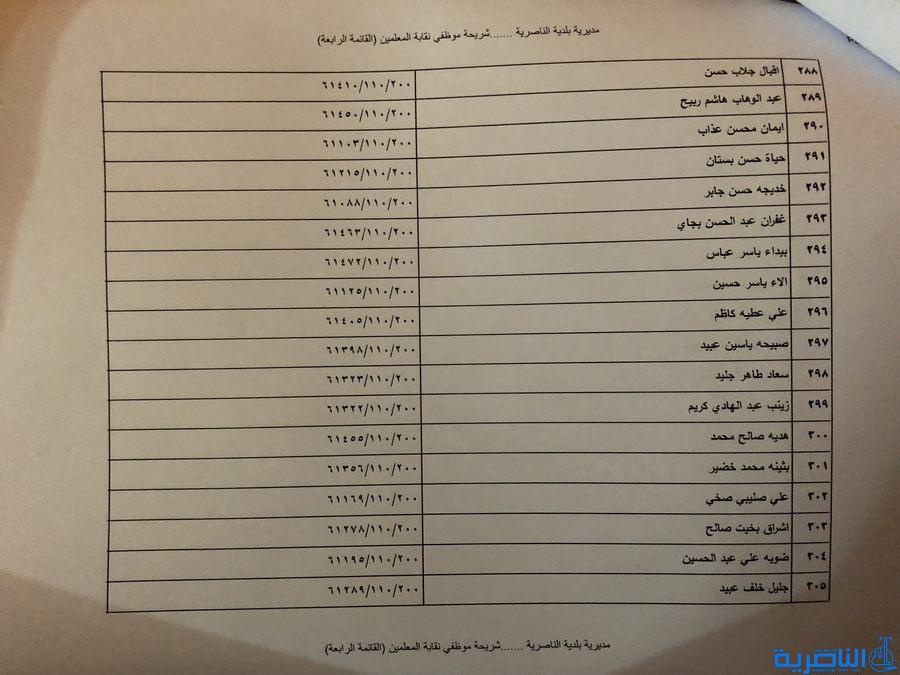 مديرية بلدية الناصرية .......شريحة موظفي نقابة المعلمين (القائمة الرابعة)
٢٨٨ اقبال جلاب حسن ٦١٤١٠/١١٠/٢٠٠
٢٨٩ عبد الوهاب هاشم ربيح ٦١٤٥٠/١١٠/٢٠٠
٢٩٠ ايمان محسن عذاب ٦١١٠٣/١١٠/٢٠٠
٢٩١ حياة حسن بستان ٦١٢١٥/١١٠/٢٠٠
٢٩٢ خديجه حسن جابر ٦١٠٨٨/١١٠/٢٠٠
٢٩٣ غفران عبد الحسن بجاي ٦١٤٦٣/١١٠/٢٠٠
٢٩٤ بيداء ياسر عباس ٦١٤٧٢/١١٠/٢٠٠
٢٩٥ الاء ياسر حسين ٦١١٢٥/١١٠/٢٠٠
٢٩٦ علي عطيه كاظم ٦١٤٠٥/١١٠/٢٠٠
٢٩٧ صبيحه ياسين عبيد ٦١٣٩٨/١١٠/٢٠٠
٢٩٨ سعاد طاهر جليد ٦١٣٢٣/١١٠/٢٠٠
٢٩٩ زينب عبد الهادي كريم ٦١٣٢٢/١١٠/٢٠٠
٣٠٠ هديه صالح محمد ٦١٤٥٥/١١٠/٢٠٠
٣٠١ بثينه محمد خضير ٦١٣٥٦/١١٠/٢٠٠
٣٠٢ علي صليبي صخي ٦١١٦٩/١١٠/٢٠٠
٣٠٣ اشراق بخيت صالح ٦١٢٧٨/١١٠/٢٠٠
٣٠٤ ضويه علي عبد الحسين ٦١١٩٥/١١٠/٢٠٠
٣٠٥ جليل خلف عبيد ٦١٢٨٩/١١٠/٢٠٠
مديرية بلدية الناصرية .......شريحة موظفي نقابة المعلمين (القائمة الرابعة)
الناصرية